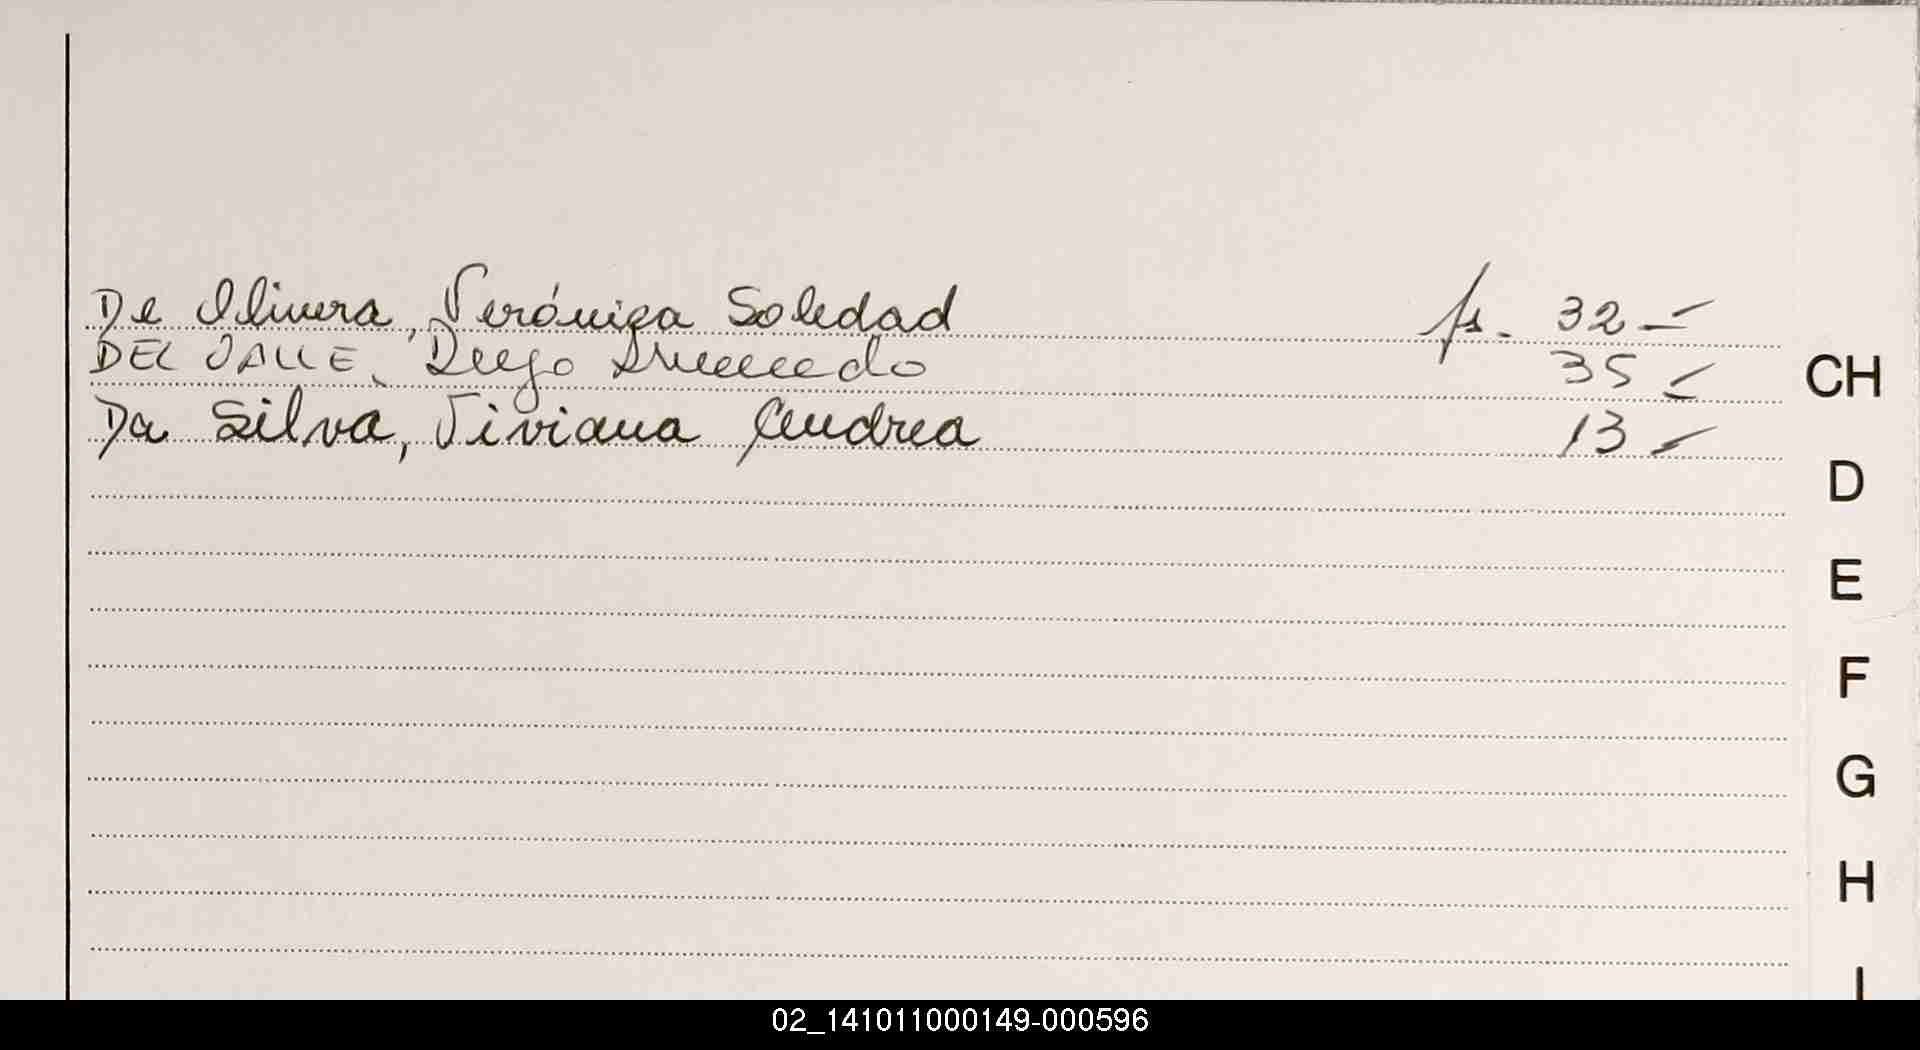 De Olivera, Verónica Soledad fs. 32 –
DEL VALLE, Diego 35 –
Da Silva, Viviana Andrea 13 –
CH
D
E
F
G
H
I
02_141011000149-000596